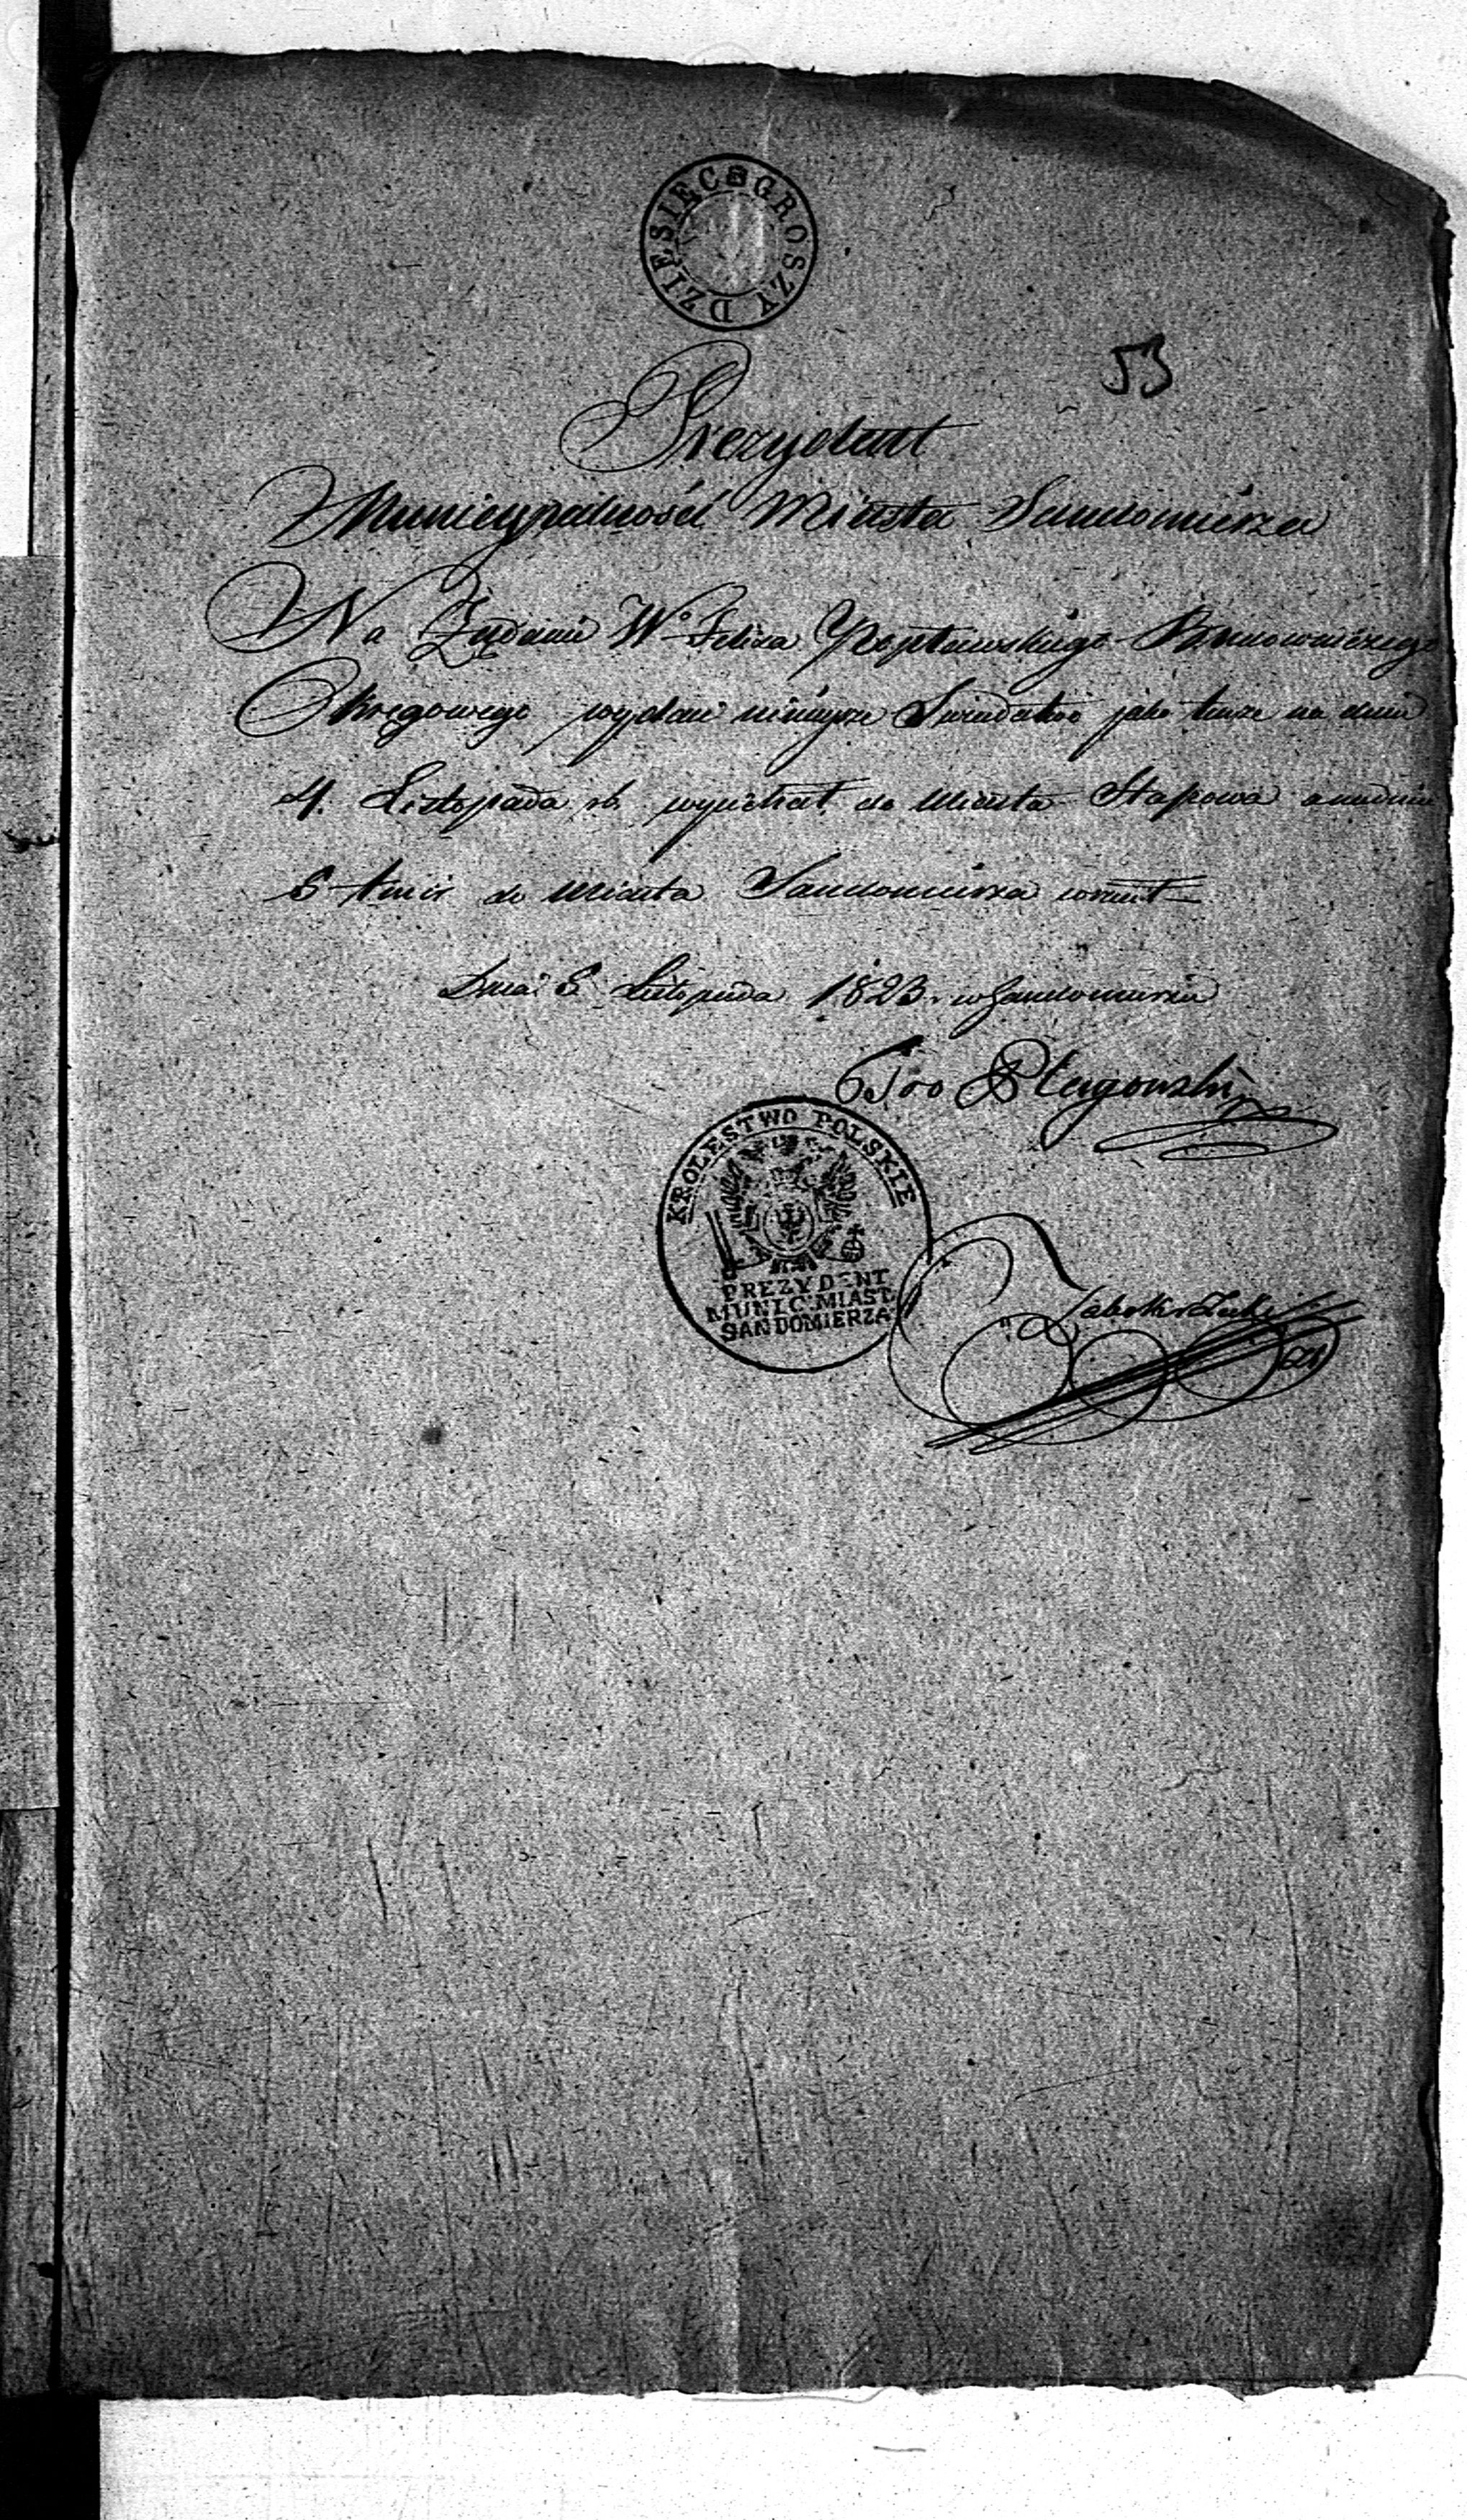 DZIESIĘC GROSZY
53
Prezydent
Municypalność Miasta Sandomierza
Na Żądanie Wo Felixa Popławskiego
Okręgowego wydaie ninieysze Swiadectwo jako tenze na dniu
4. Listopada rb. wyiechał do Miasta Stapowa a na dniu
5 tmir do Miasta Sandomierza wrócił
Dnia 5 Listopada 1823 r w Sandomierzu
KROLESTWO POLSKIE
PREZYDENT
MUNIC: MIAST:
SANDOMIERZA